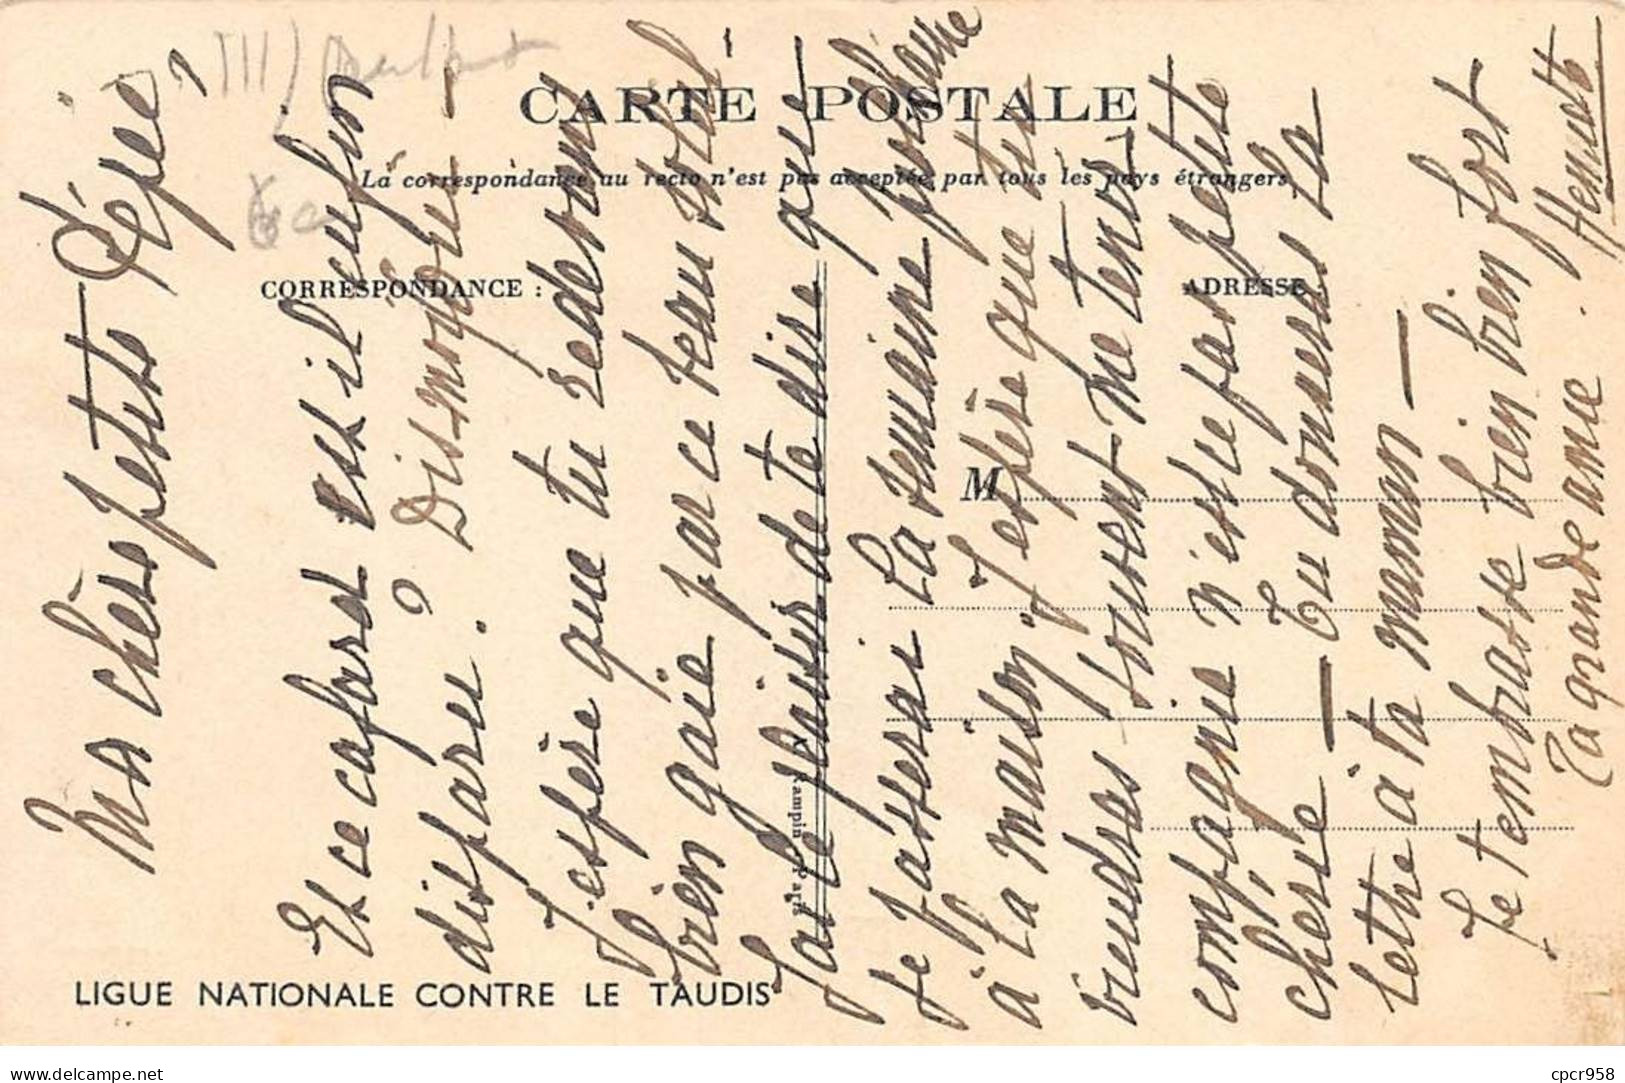 CARTE POSTALE
La correspondance au recto n'est pas acceptée par tous les pays étrangers
CORRESPONDANCE :
ADRESSE :
M
LIGUE NATIONALE CONTRE LE TAUDIS
Ma chère petite Pépée,
Et ce cafard est il enfin
disparu ? Dis moi oui -
J'espère que tu redeviens
bien gaie par ce beau soleil
J'ai le plaisir de te dire que
je passerai la semaine prochaine
à la maison. J'espère que tu
viendras souvent me tenir
compagnie n'est ce pas petite
chérie - Tu donneras la
lettre à ta maman -
Je t'embrasse bien bien bien fort
Ta grande amie.
cpcr958